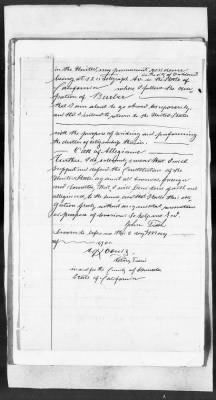 in the United, my permanent residence
being at 521 Telegraph Av. in the City of Oakland State of
California where I follow the occu
pation of Barber
that I am about to go abroad temporarily
and that I intend to return to the United States
with the purpose of residing and performing
the duties of citizenship therein.
Oath of Allegiance
Further, I do solemnly swear that I will
support and defend the Constitution of the
United States against all enemies foreign
and domestic, that I will bear true faith and
allegiance to the same and that I take this obli
gation freely without any mental reservation
or purpose of evasion: So help me God.
John
Sworn to before me this 2 day of May
of 1900
Notary Public
in and for the County of Alameda
State of California